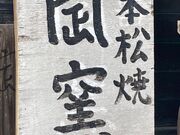 本松焼
岡窯